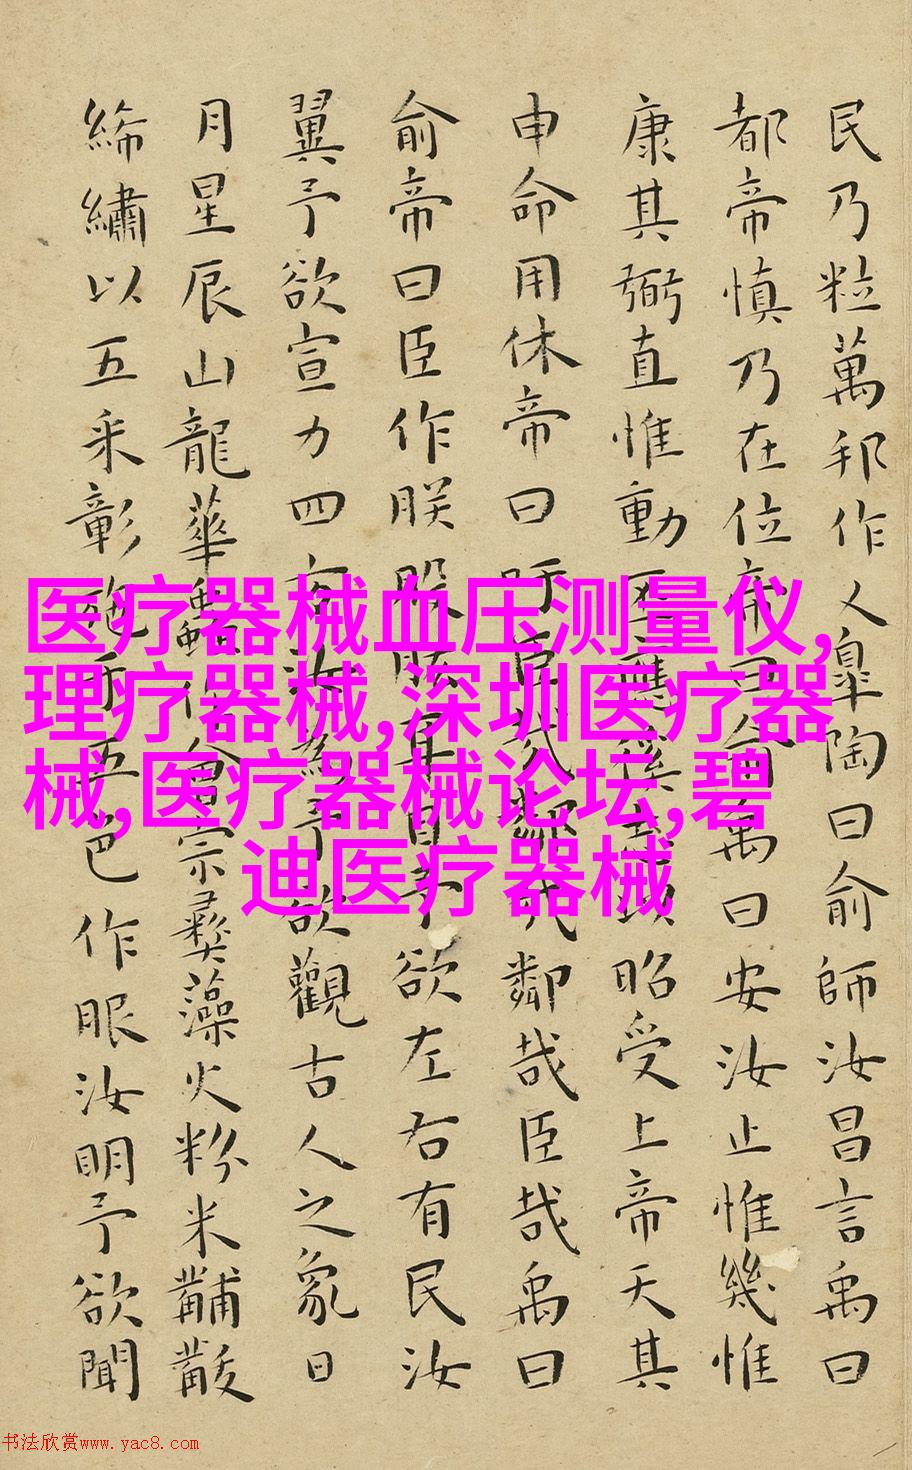 民乃粒萬邦作乂皐陶曰俞師汝昌言禹曰
都帝慎乃在位帝曰俞禹曰安汝止惟幾惟
康其弼直惟動丕應徯昭受上帝天其
申命用休帝曰吁臣哉鄰哉鄰哉臣哉禹曰
俞帝曰臣作朕股肱耳目予欲左右有民汝
翼予欲宣力四方汝為予欲觀古人之象日
月星辰山龍華蟲作會宗彝藻火粉米黼黻
絺繡以五采彰施于五色作服汝明予欲聞
医疗器械血压测量仪,
理疗器械,深圳医疗器
械,医疗器械论坛,碧
迪医疗器械
书法欣赏www.yac8.com